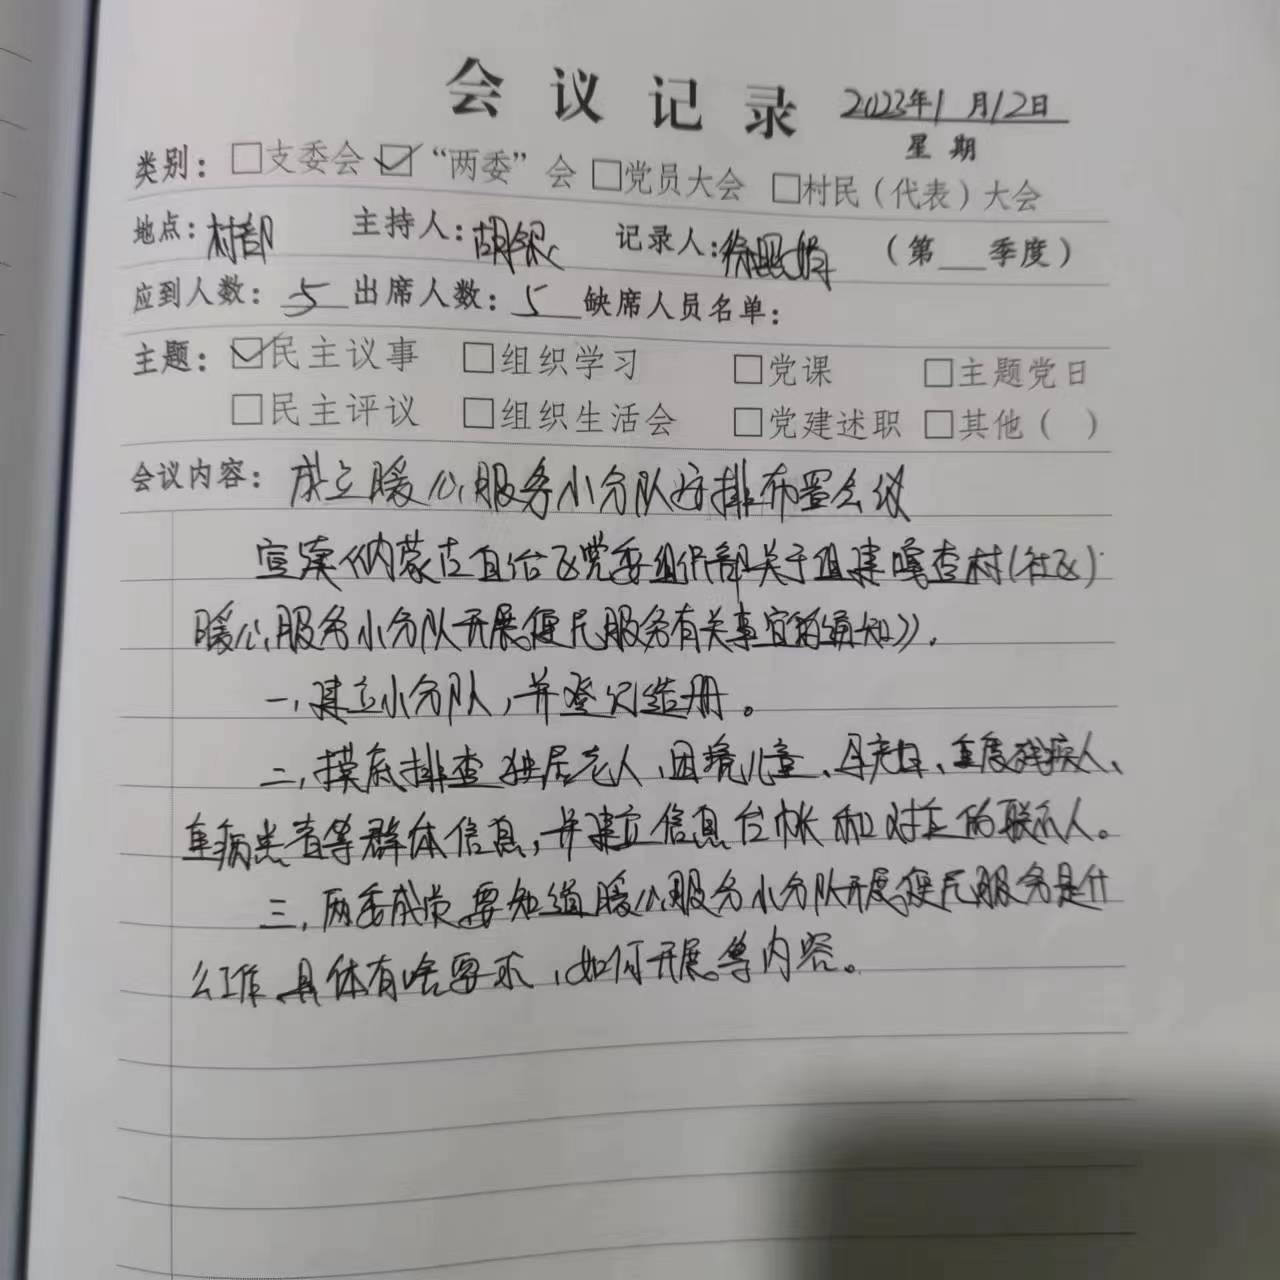 会议记录 2023年1月12日
星期
类别：□支委会 ☑“两委”会 □党员大会 □村民（代表）大会
地点：村部 主持人：胡银 记录人：徐 娟 （第__季度）
应到人数：5 出席人数：5 缺席人员名单：
主题：☑民主议事 □组织学习 □党课 □主题党日
□民主评议 □组织生活会 □党建述职 □其他（ ）
会议内容：成立暖心服务小分队安排布置会议
宣读《内蒙古自治区党委组织部关于组建嘎查村(社区)
暖心服务小分队开展便民服务有关事宜的通知》。
一，建立小分队，并登记造册。
二，摸底排查独居老人、困境儿童、孕产妇、重度残疾人、
重病患者等群体信息，并建立信息台帐和对应的联系人。
三，两委成员要知道暖心服务小分队开展便民服务是什
么工作，具体有啥要求，如何开展等内容。